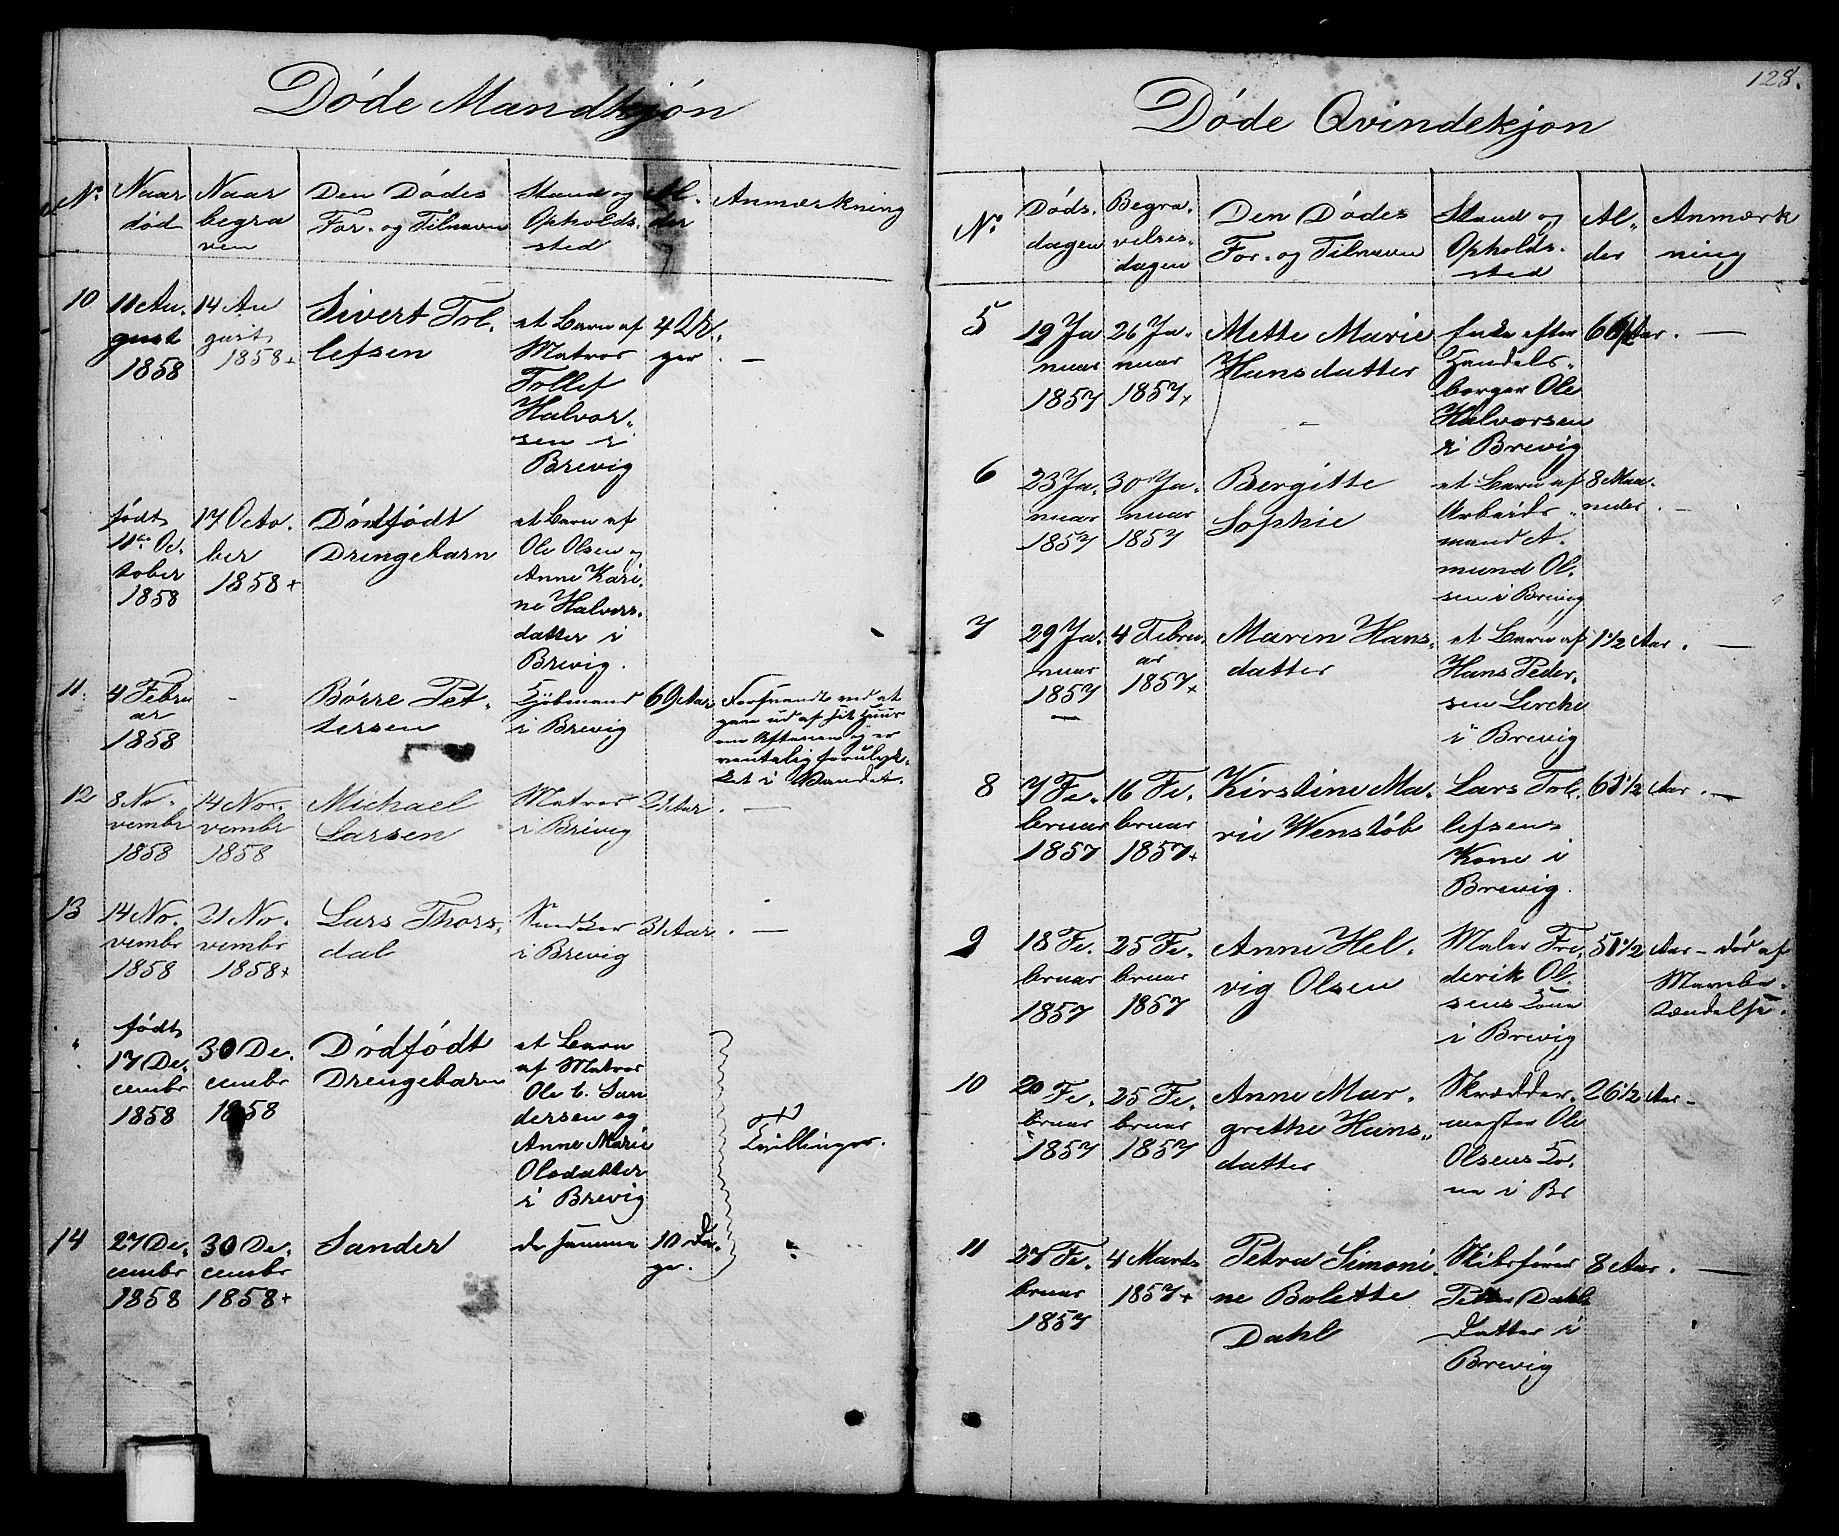 Døde Mandkjøn
No. Naar død Naar begra ven Den Dødes For- og Tilnavn Stand og Opholds. sted Al- der Anmærkning
10 11 Au. gust 1858 14 Au gust 1858+ Sivert Tol. lefsen et Barn af Matros Tollef Halvor, sen i Brevig 4 Da. ger. —
født 11te Oc. tober 1858 17 Octo. ber 1858+ Dødfødt Drengebarn et Barn af Ole Olsen og Anne Kari. ne Halvors. datter i Brevig.
11. 4 Febru ar 1858 - Børre Pet- tersen i Brevig 69 Aar Forsvandt ved at gaae ud af sit Huus om Aftenen og er ventelig forulyk- ket i Vandet.
12 8 No. vembr 1858 14 No. vembr 1858 Michael Larsen Matros i Brevig Aar. —
13 14 No. vembr 1858 21 No. vembr 1858+ Lars Thors. dal i Brevig 31 Aar. —
født 17 De. cembr 1858 30 De. cembr 1858 Dødfødt Drengebarn et Barn af Matros Ole C. San dersen og Anne Marie Olsdatter i Brevig Tvillinger.
14 27 De. cembr 1858 30 De. cembr 1858+ Sander de samme 10 Da. ge.
128.
Døde Qvindekjøn
No Døds. dagen Begra. velses. dagen Den Dødes For- og Tilnavn Stand og Opholds. sted Al- der Anmærk ning
5 19 Ja nuar 1857 26 Ja. nuar 1857+ Mette Marie Hansdatter Enke efter Handels. borger Ole Halvorsen i Brevig Aar. —
6 23 Ja. nuar 1857 30 Ja. nuar 1857 Bergitte Sophie et Barn af Arbeids. mand A. mund Ol. sen i Brevig 8 Maa. neder. —
7 29 Ja. nuar 1857 4 Febru. ar 1857+ Maren Hans. datter et Barn af Hans Peder. sen Lerche i Brevig 1 1/2 Aar. —
8 7 Fe. bruar 1857 16 Fe. bruar 1857+ Kirstine Ma. rie Wenstøb Lars Tol. lefsens Kone i Brevig. 61 1/2 Aar. —
9 18 Fe. bruar 1857 25 Fe. bruar 1857 Anne Hel. vig Olsen Maler Fre. derik Ol. sens Kone i Brevig 51 1/2 Aar — død af
10 20 Fe. bruar 1857 25 Fe. bruar 1857 Anne Mar. grethe Hans. datter Skrædder. mester Ole Olsens Ko. ne i Br 26 1/2 Aar —
11 27 Fe. bruar 1857 4 Marts 1857+ Petra Simoni. ne Bolette Dahl Skibsfører Petter Dahls Datter i Brevig 8 Aar. —